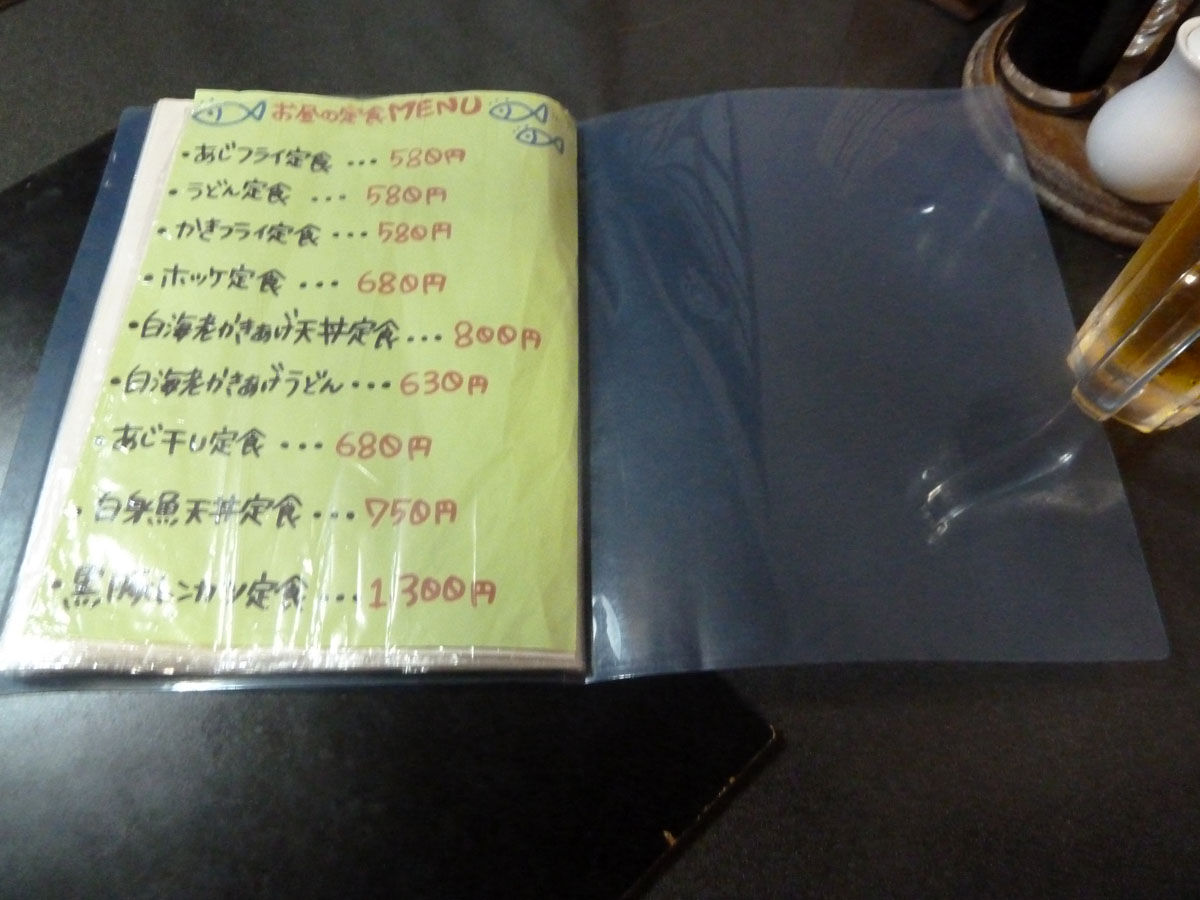 お昼の定食MENU
・あじフライ定食 ... 580円
・うどん定食 ... 580円
・かきフライ定食 ... 580円
・ホッケ定食 ... 680円
・白海老かきあげ天丼定食... 800円
・白海老かきあげうどん... 630円
・あじ干し定食 ... 680円
・白身魚天丼定食 ... 750円
・黒豚ヒレカツ定食 ... 1300円